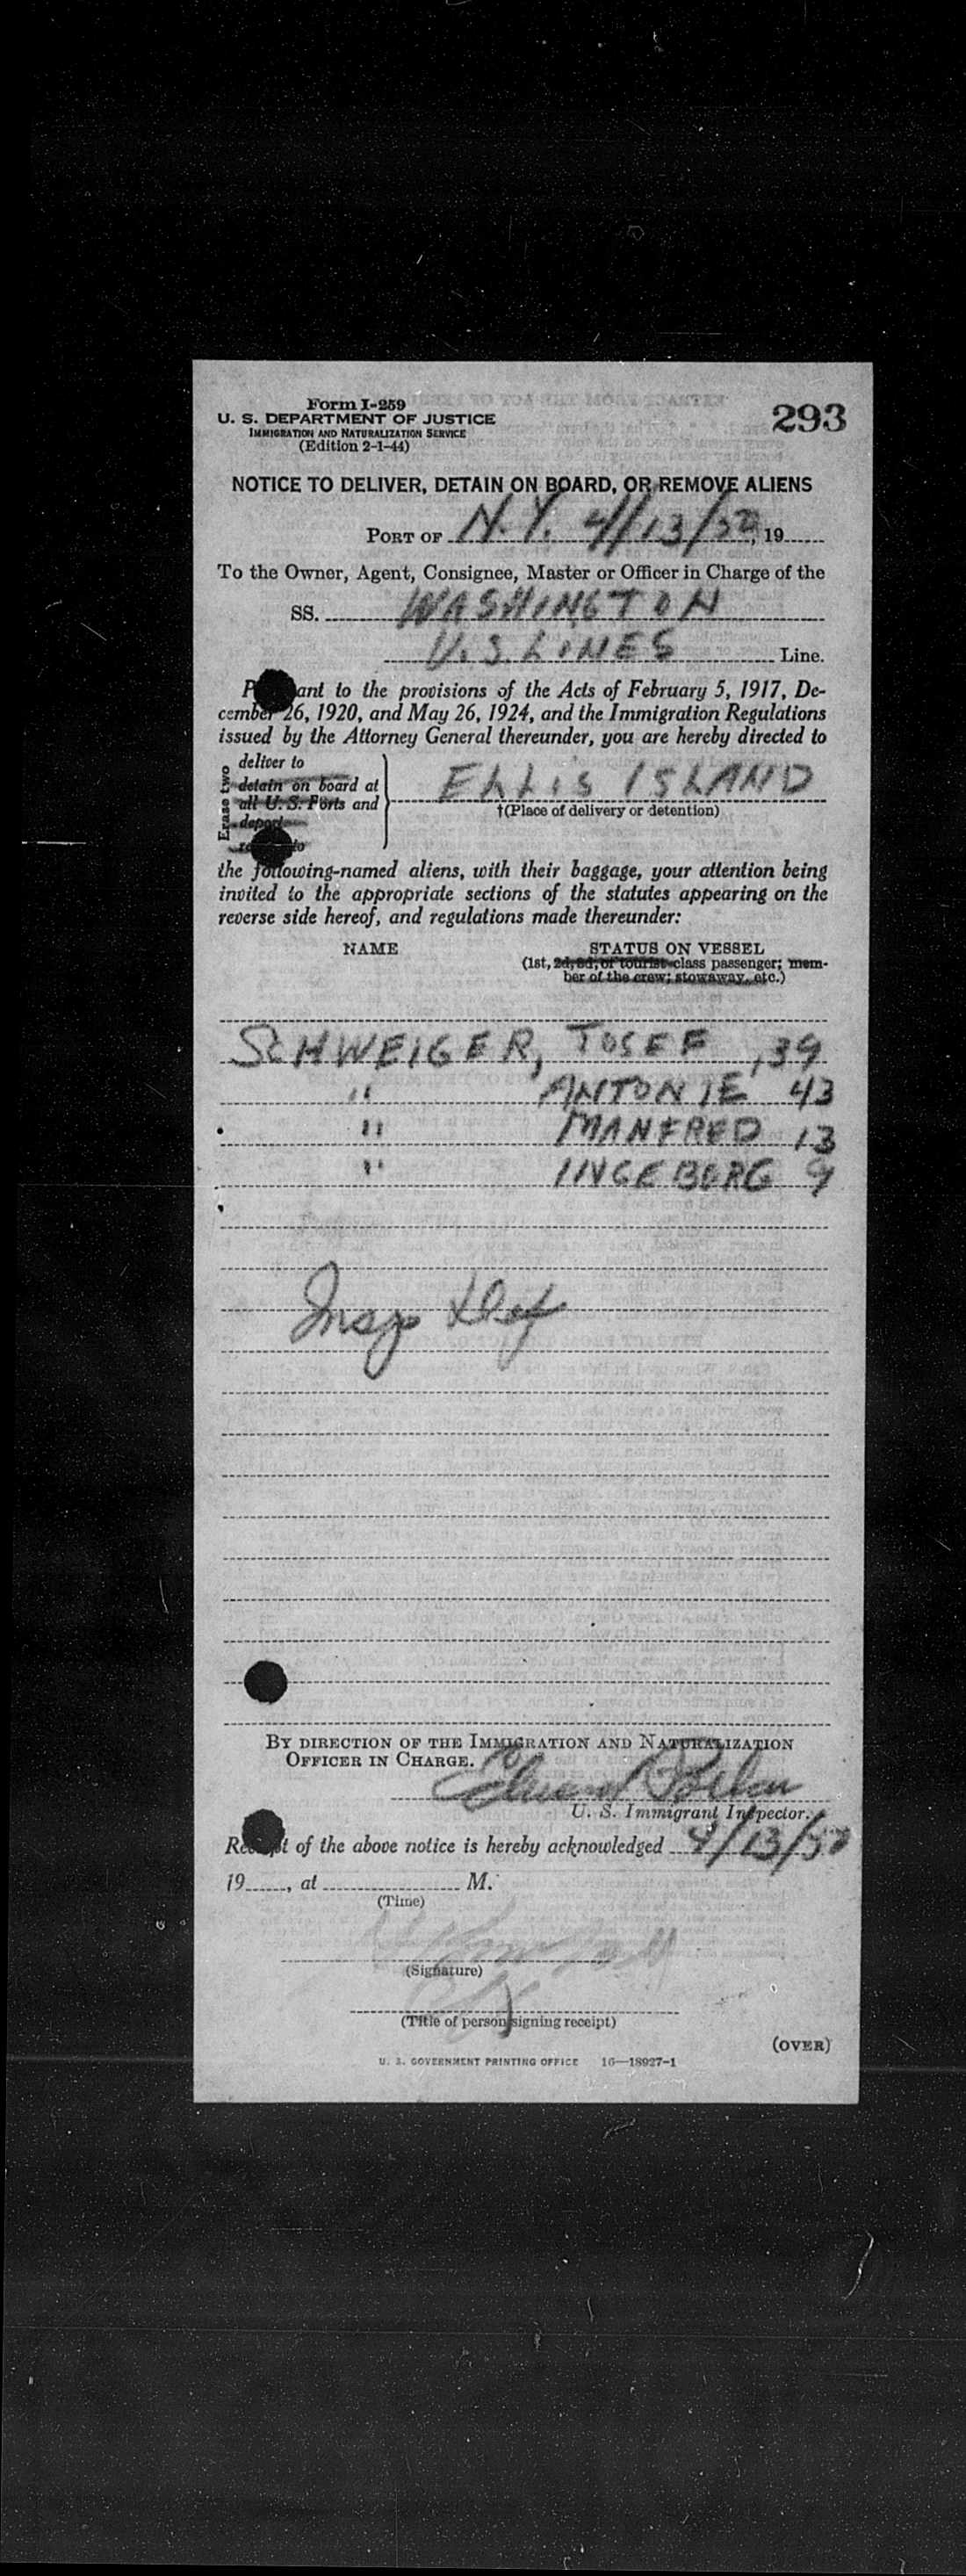 Form I-259
U. S. DEPARTMENT OF JUSTICE
IMMIGRATION AND NATURALIZATION SERVICE
(Edition 2-1-44)
293
NOTICE TO DELIVER, DETAIN ON BOARD, OR REMOVE ALIENS
PORT OF N.Y. 4/13/50, 19
To the Owner, Agent, Consignee, Master or Officer in Charge of the
SS. WASHINGTON
U.S. LINES Line.
ant to the provisions of the Acts of February 5, 1917, De-
cember 26, 1920, and May 26, 1924, and the Immigration Regulations
issued by the Attorney General thereunder, you are hereby directed to
Erase two
deliver to
detain on board at
all U. S. Ports and
deport
ELLIS ISLAND
†(Place of delivery or detention)
the following-named aliens, with their baggage, your attention being
invited to the appropriate sections of the statutes appearing on the
reverse side hereof, and regulations made thereunder:
NAME
STATUS ON VESSEL
(1st, 2d, 3d, or tourist-class passenger; mem-
ber of the crew; stowaway, etc.)
SCHWEIGER, JOSEF, 39
" ANTONIE 43
" MANFRED 13
" INGEBORG 9
BY DIRECTION OF THE IMMIGRATION AND NATURALIZATION
OFFICER IN CHARGE.
U. S. Immigrant Inspector.
Receipt of the above notice is hereby acknowledged 4/13/50
19, at M.
(Time)
(Signature)
(Title of person signing receipt)
(OVER)
U. S. GOVERNMENT PRINTING OFFICE 16—18927-1